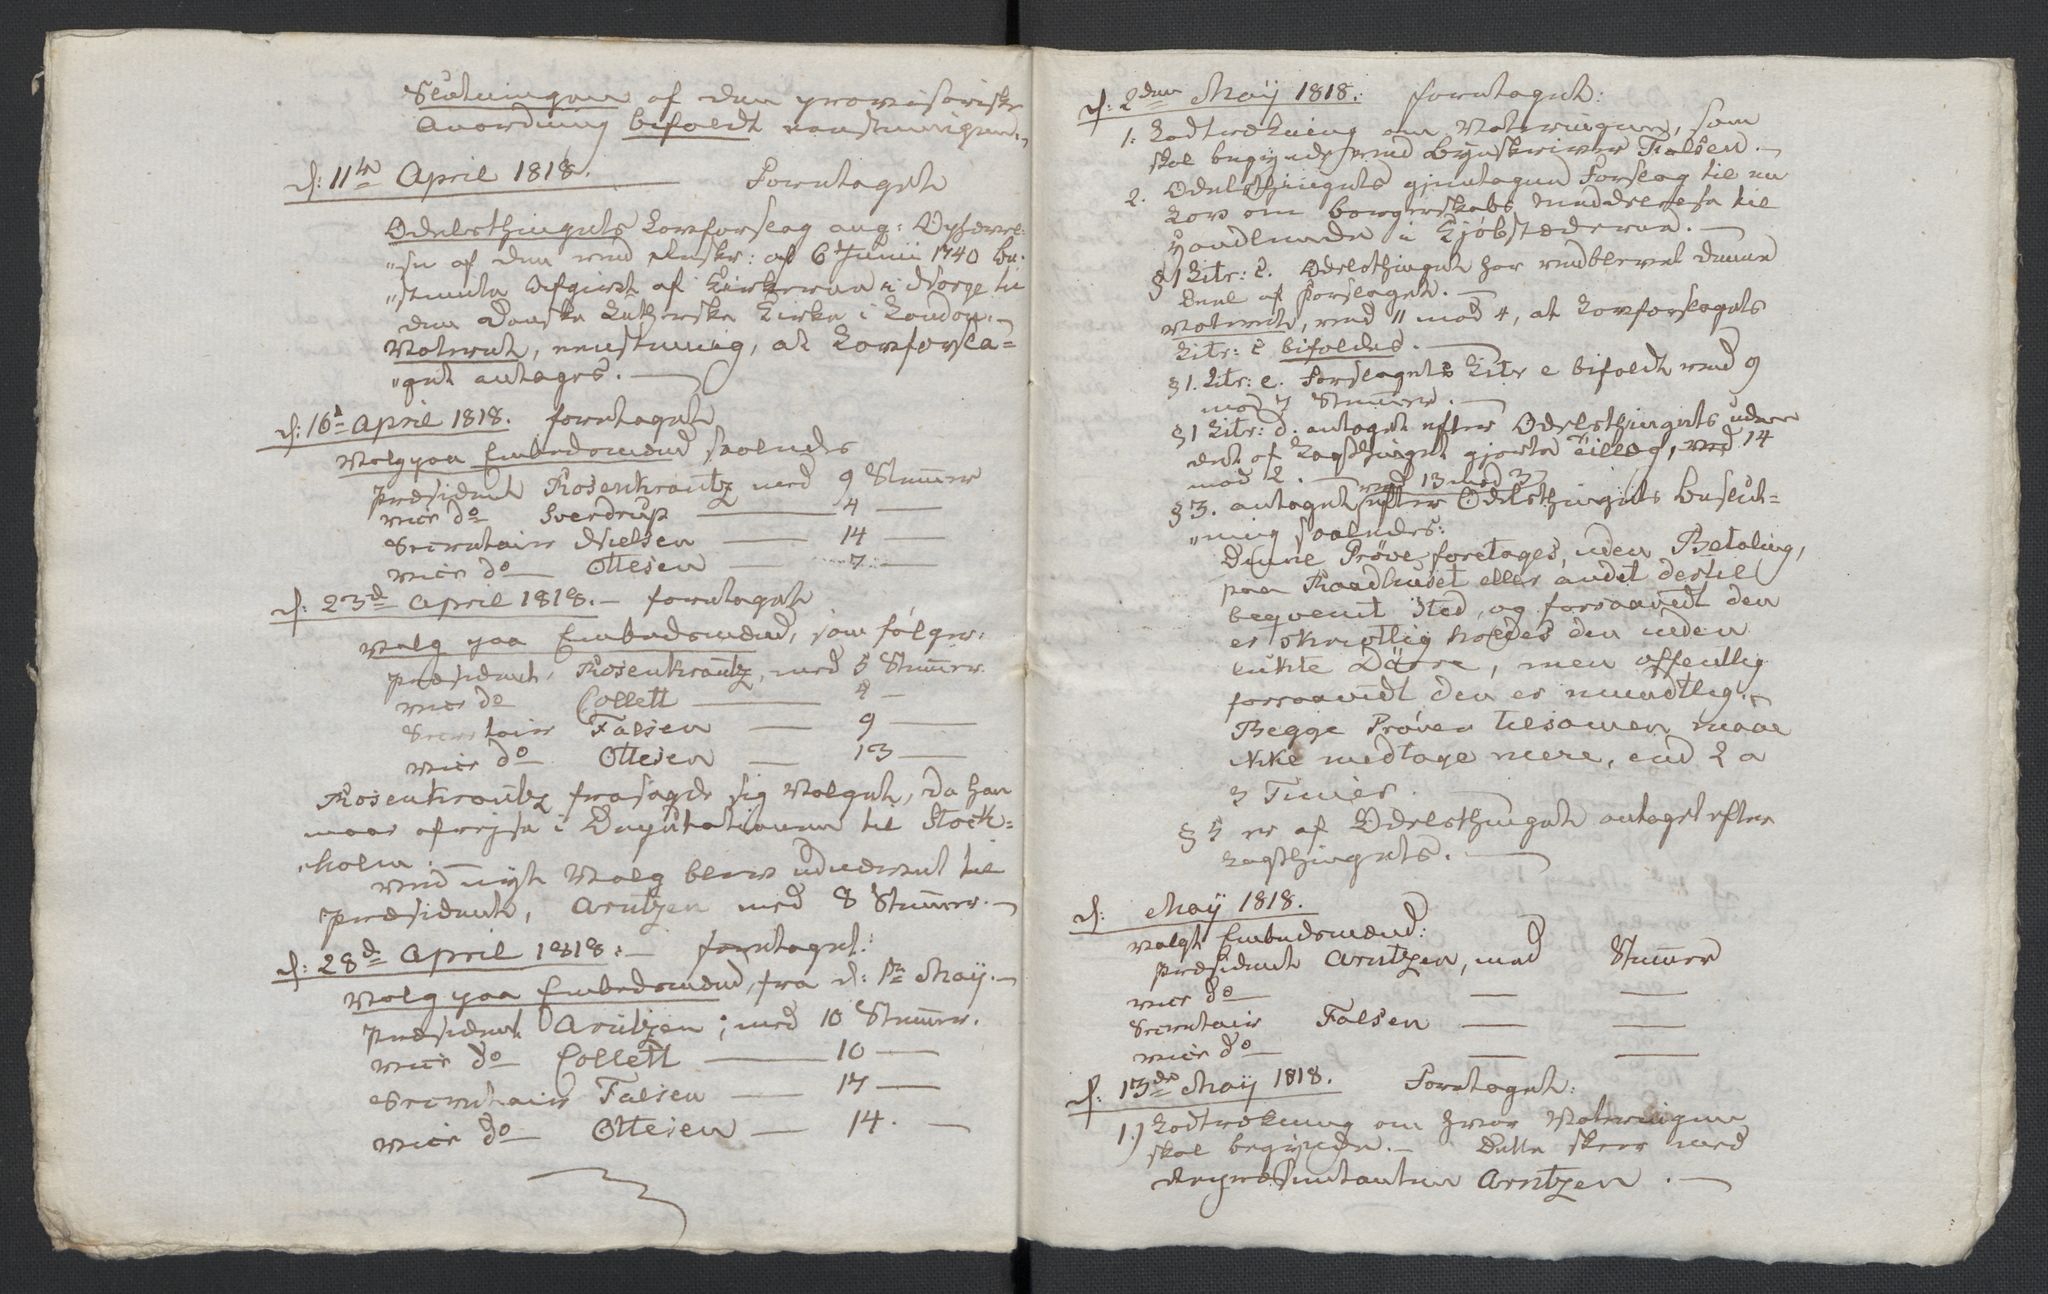 Slutningen af den provisoriske
Anordning bifaldt eenstemmigen.
d: 11te April 1818. Foretaget
Odelsthingets Lovforslag ang: Ophævel-
„se af den ved Rskr: af 6 Junii 1740 be-
„stemte Afgivt af Kirkerne i Norge til
den Danske Lutherske Kirke i London.
Voteret, eenstemmig, at Lovforsla-
„get antages.
d: 16d April 1818. foretaget
Valg paa Embedsmænd saaledes
Præsident Rosenkrantz med 9 Stemer
vice do Sverdrup 4
Secretair Nielsen 14
vice do Ottesen 7
d: 23d April 1818. foretaget
Valg paa Embedsmænd, som følger:
Præsident, Rosenkrantz, med 5 Stemer.
vice do Collett 4
Secretair Falsen 9
vice do Ottesen 13
Rosenkrantz frasagde sig Valget, da han
maae afreise i Deputationen til Stock-
„holm.
Ved nyt Valg blev udnævnt til
Præsident, Arntzen med 8 Stemer.
d: 28d April 1818. foretaget:
Valg paa Embedsmænd, fra d: 1te May.
Præsident Arntzen, med 10 Stemer.
vice do Collett 10
Secretair Falsen 17
vice do Ottesen 14.
d: 2den May 1818. foretaget:
1. Lodtrækning om Voteringen, som
skal begynde med Byeskriver Falsen.
2. Odelsthingets gjentagen Forslag til en
Lov om Borgerskabs Meddelelse til
Handlende i Kjøbstæderne.
§ 1 Litr: c. Odelsthinget har vedblevet denne
Deel af Forslaget.
Voteret, med 11 mod 4, at Lovforslagets
Litr: c bifaldes.
§ 1. Litr: e. Forslagets Litr e bifaldt med 9
mod 7 Stemer.
§ 1 Litr: d. antaget efter Odelsthingets uden
det af Lagthinget gjorte Tillæg, med 14
mod 2.
med 13 mod 3
§ 3. antaget efter Odelsthingets Beslut-
„ning saaledes:
Denne Prøve foretages, uden Betaling,
paa Raadhuset eller andet dertil
beqvemt Sted, og forsaavidt den
er skriftlig holdes den inden
lukte Dörre, men offentlig
forsaavidt den er mundtlig.
Begge Prøver tilsamen maae
ikke medtage mere, end 2 a
3 Timer.
§ 5 er af Odelsthinget antaget efter
Lagthingets.
d: May 1818.
Valgt Embedsmænd:
Præsident Arntzen, med Stemer
vice do
Secretair Falsen
vice do
d: 13de May 1818. Foretaget:
1.) Lodtrækning om hvor Voteringen
skal begynde. Dette skeer med
Repræsentanten Arntzen.